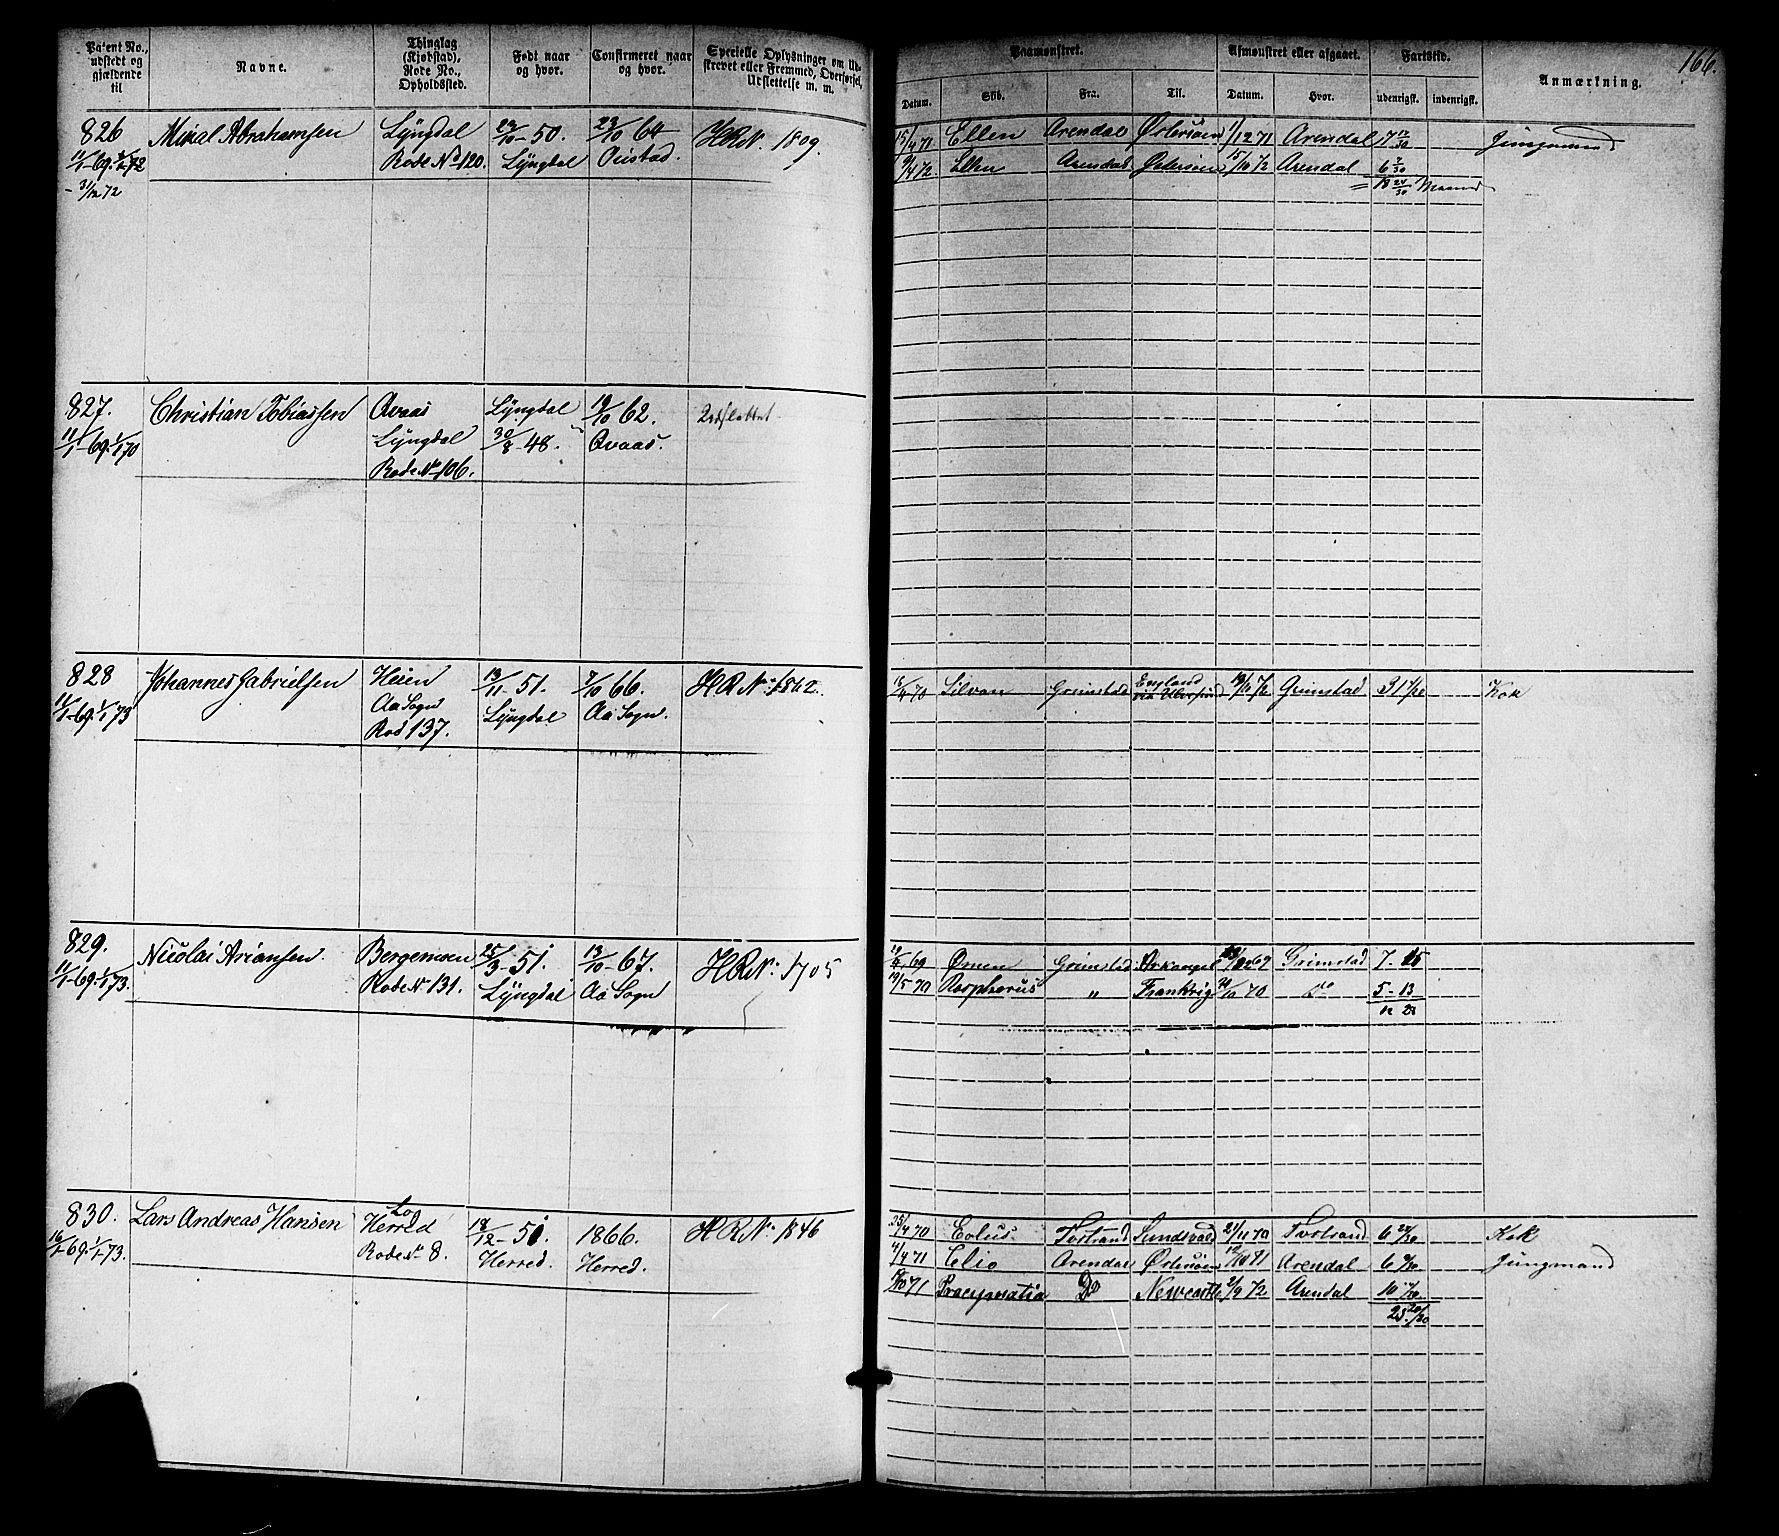 166.
Patent No., udstedt og gjældende til
Navne.
Thinglag (Kjøbstad), Rode No., Opholdssted.
Født naar og hvor.
Confirmeret naar og hvor.
Specielle Oplysninger om Udskrevet eller Fremmed, Overførsel, Udslettelse m. m.
Paamønstret.
Datum.
Skib.
Fra.
Til.
Afmønstret eller afgaaet.
Datum.
Hvor.
Fartstid.
udenrigsk.
indenrigsk.
Anmærkning.
826 Mikal Abrahamsen Lyngdal 50. 23/10 64 HRN. 1809.
11/1-69-1/1-72 Rode No 120. Lyngdal
- 31/12 72
15/4 71 Ellen Arendal Østersøen 1/12 71 Arendal 7 17/30 Jungmand
9/4 72 Ellen Arendal Østersøen 15/10 72 Arendal 6 7/30
= 13 24/30 Maaned
827. Christian Tobiassen Qvaas Lyngdal 19/10 62. Udslettet
11/1-69-1/1-70 Lyngdal 30/8-48. Qvaas.
Rode No 106.
828 Johannes Gabrielsen Heien 13/11-51. 7/10 66. HRN. 1862.
11/1-69-1/1-73 Aa Sogn Lyngdal Aa Sogn.
Rod 137.
18/4 70 Silvan Grimstad England 19/10 72 Grimstad Kok
829. Nicolai Ariansen. Bergemoen 25/3-51. 13/10-67. HRN. 1705
11/1-69-1/1-73. Rode No 131. Lyngdal Aa Sogn
69 Ømen Grimstad Arkangel 69 Grimstad 7-15
19/5 70 Bosphorus " Frankrig 70 do 5-13
12 28
830. Lars Andreas Hansen Herred 18/12-51. 1866. HRN. 1846
16/1-69-1/1-73. Rode No 8. Herred. Herred.
25/4 70 Eolus Tvstrand Sundsvald 21/11 70 Tvstrand 6 Kok
4/4 71 Clio Arendal Østersøen 12/10 71 Arendal 6 Jungmand
71 Do Newcastle 2/9 72 Arendal 10